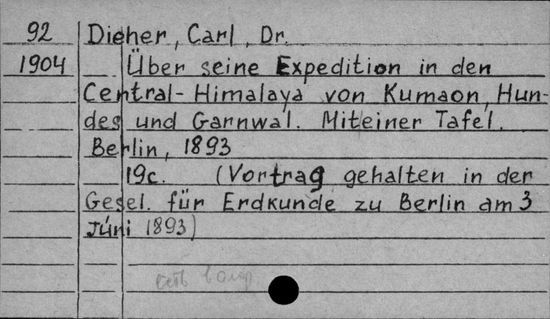 92 Dieher, Carl, Dr.
1904 Über seine Expedition in den
Central-Himalaya von Kumaon, Hun-
des und Garnwal. Miteiner Tafel.
Berlin, 1893
19c. (Vortrag gehalten in der
Gesel. für Erdkunde zu Berlin am 3
Júni 1893)